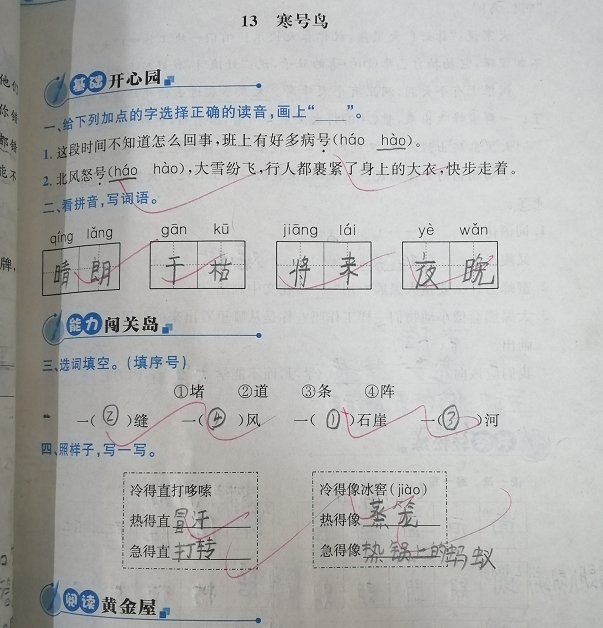 13 寒号鸟
基础开心园
一、给下列加点的字选择正确的读音,画上“____”。
1. 这段时间不知道怎么回事,班上有好多病号(háo hào)。
2. 北风怒号(háo hào),大雪纷飞,行人都裹紧了身上的大衣,快步走着。
二、看拼音,写词语。
qíng lǎng gān kū jiāng lái yè wǎn
晴朗 干枯 将来 夜晚
能力闯关岛
三、选词填空。(填序号)
①堵 ②道 ③条 ④阵
一(②)缝 一(④)风 一(①)石崖 一(③)河
四、照样子,写一写。
冷得直打哆嗦 冷得像冰窖(jiào)
热得直冒汗 热得像蒸笼
急得直打转 急得像热锅上的蚂蚁
阅读黄金屋